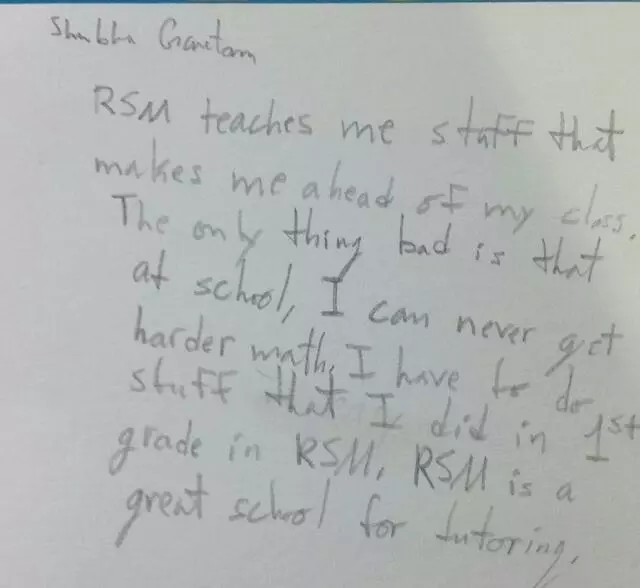 Shubha
RSM teaches me stuff that
makes me ahead of my class.
The only thing bad is that
at school, I can never get
harder math. I have to do
stuff that I did in 1st
grade in RSM. RSM is a
great school for tutoring.